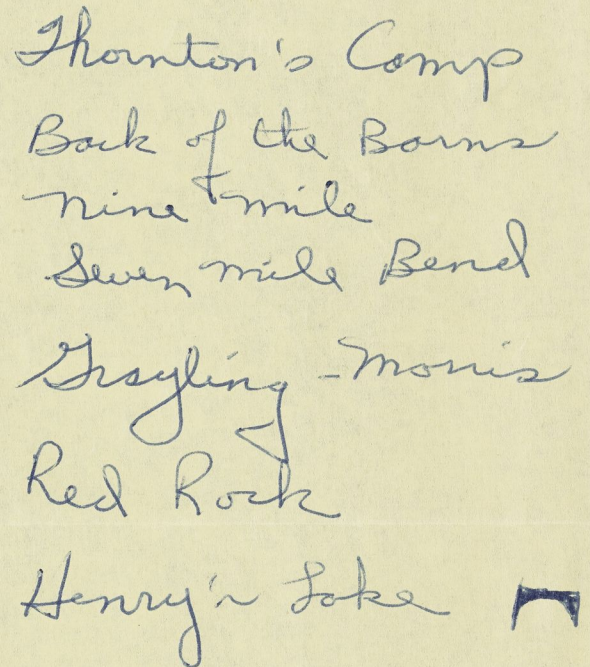 Thornton's Camp
Back of the Barns
Nine mile
Seven mile Bend
Grayling - Morris
Red Rock
Henry's Lake